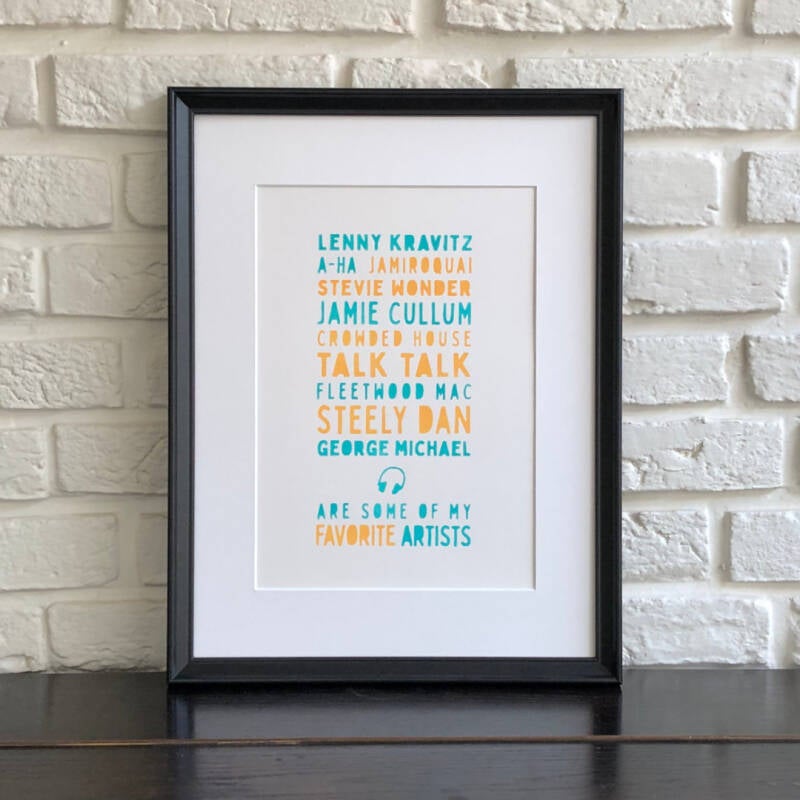 LENNY KRAVITZ
A-HA JAMIROQUAI
STEVIE WONDER
JAMIE CULLUM
CROWDED HOUSE
TALK TALK
FLEETWOOD MAC
STEELY DAN
GEORGE MICHAEL
ARE SOME OF MY
FAVORITE ARTISTS